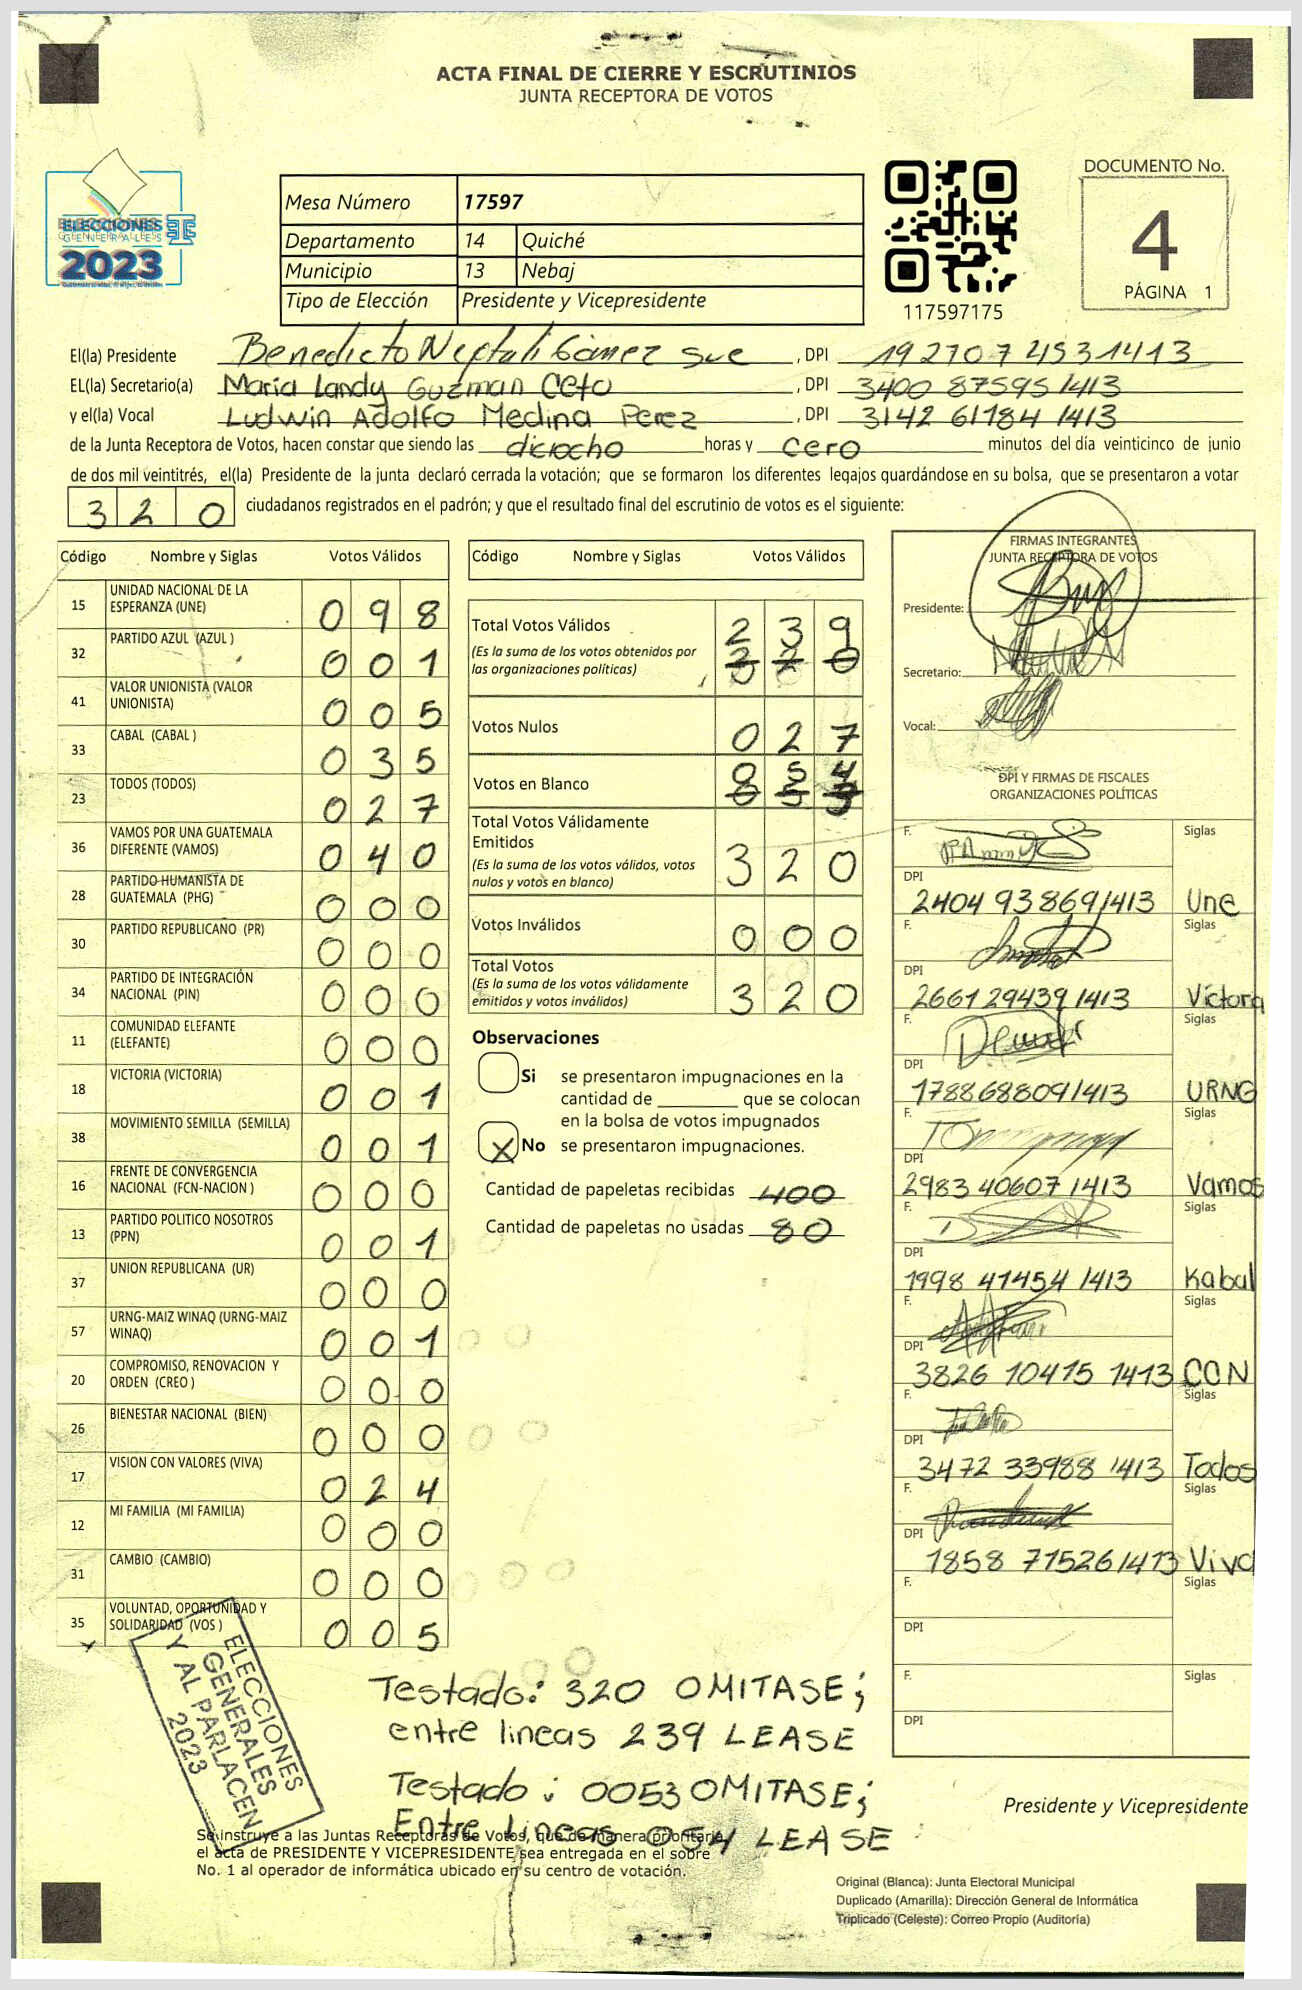 ACTA FINAL DE CIERRE Y ESCRUTINIOS
JUNTA RECEPTORA DE VOTOS
ELECCIONES
GENERALES
2023
Mesa Número 17597
Departamento 14 Quiché
Municipio 13 Nebaj
Tipo de Elección Presidente y Vicepresidente
117597175
DOCUMENTO No.
4
PÁGINA 1
El(la) Presidente Benedicto Neptali Gómez , DPI 1927074531413
EL(la) Secretario(a) Maria Landy Guzman Ceto , DPI 3400 87595 1413
y el(la) Vocal Ludwin Adolfo Medina Perez , DPI 3142 61784 1413
de la Junta Receptora de Votos, hacen constar que siendo las diciocho horas y cero minutos del día veinticinco de junio
de dos mil veintitrés, el(la) Presidente de la junta declaró cerrada la votación; que se formaron los diferentes legajos guardándose en su bolsa, que se presentaron a votar
320 ciudadanos registrados en el padrón; y que el resultado final del escrutinio de votos es el siguiente:
Código Nombre y Siglas Votos Válidos
15 UNIDAD NACIONAL DE LA ESPERANZA (UNE) 098
32 PARTIDO AZUL (AZUL ) 001
41 VALOR UNIONISTA (VALOR UNIONISTA) 005
33 CABAL (CABAL ) 035
23 TODOS (TODOS) 027
36 VAMOS POR UNA GUATEMALA DIFERENTE (VAMOS) 040
28 PARTIDO HUMANISTA DE GUATEMALA (PHG) 000
30 PARTIDO REPUBLICANO (PR) 000
34 PARTIDO DE INTEGRACIÓN NACIONAL (PIN) 000
11 COMUNIDAD ELEFANTE (ELEFANTE) 000
18 VICTORIA (VICTORIA) 001
38 MOVIMIENTO SEMILLA (SEMILLA) 001
16 FRENTE DE CONVERGENCIA NACIONAL (FCN-NACION ) 000
13 PARTIDO POLITICO NOSOTROS (PPN) 001
37 UNION REPUBLICANA (UR) 000
57 URNG-MAIZ WINAQ (URNG-MAIZ WINAQ) 001
20 COMPROMISO, RENOVACION Y ORDEN (CREO ) 000
26 BIENESTAR NACIONAL (BIEN) 000
17 VISION CON VALORES (VIVA) 024
12 MI FAMILIA (MI FAMILIA) 000
31 CAMBIO (CAMBIO) 000
35 VOLUNTAD, OPORTUNIDAD Y SOLIDARIDAD (VOS ) 005
Código Nombre y Siglas Votos Válidos
Total Votos Válidos 239
(Es la suma de los votos obtenidos por 320
las organizaciones políticas)
Votos Nulos 027
Votos en Blanco 054
Total Votos Válidamente
Emitidos 320
(Es la suma de los votos válidos, votos
nulos y votos en blanco)
Votos Inválidos 000
Total Votos
(Es la suma de los votos válidamente
emitidos y votos inválidos) 320
Observaciones
Si se presentaron impugnaciones en la
cantidad de ________ que se colocan
en la bolsa de votos impugnados
X No se presentaron impugnaciones.
Cantidad de papeletas recibidas 400
Cantidad de papeletas no usadas 80
FIRMAS INTEGRANTES
JUNTA RECEPTORA DE VOTOS
Presidente:
Secretario:
Vocal:
DPI Y FIRMAS DE FISCALES
ORGANIZACIONES POLÍTICAS
F. Siglas
DPI 2404 93869 1413 Une
F. Siglas
DPI 2661 29439 1413 Victoria
F. Siglas
DPI 1788 68809 1413 URNG
F. Siglas
DPI 2983 40607 1413 Vamos
F. Siglas
DPI 1998 41454 1413 Kabal
F. Siglas
DPI 3826 10415 1413 CCN
F. Siglas
DPI 3472 33988 1413 Todos
F. Siglas
DPI 1858 71526 1413 Viva
F. Siglas
DPI
F. Siglas
DPI
ELECCIONES
GENERALES
Y AL PARLACEN
2023
Testado: 320 OMITASE;
entre lineas 239 LEASE
Testado: 0053 OMITASE;
Entre lineas 054 LEASE
Se instruye a las Juntas Receptoras de Votos, que de manera prioritaria
el acta de PRESIDENTE Y VICEPRESIDENTE sea entregada en el sobre
No. 1 al operador de informática ubicado en su centro de votación.
Presidente y Vicepresidente
Original (Blanca): Junta Electoral Municipal
Duplicado (Amarilla): Dirección General de Informática
Triplicado (Celeste): Correo Propio (Auditoría)